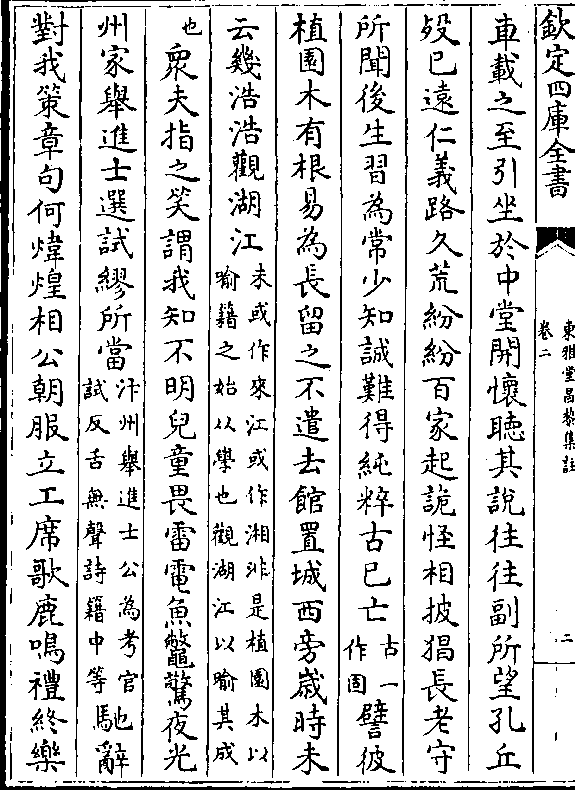 欽定四庫全書
東雅堂昌黎集註
卷二
二
車載之至引坐於中堂開懷聽其說往往副所望孔丘
殁已遠仁義路久荒紛紛百家起詭怪相披猖長老守
所聞後生習為常少知誠難得純粹古已亡古一作固譬彼
植園木有根易為長留之不遣去館置城西旁歲時未
云幾浩浩觀湖江未或作來江或作湘非是植園木以喻籍之始从學也觀湖江以喻其成
也眾夫指之笑謂我知不明兒童畏雷電魚鼈驚夜光
州家舉進士選試繆所當汴州舉進士公為考官試反舌無聲詩籍中等馳辭
對我策章句何煒煌相公朝服立工席歌鹿鳴禮終樂